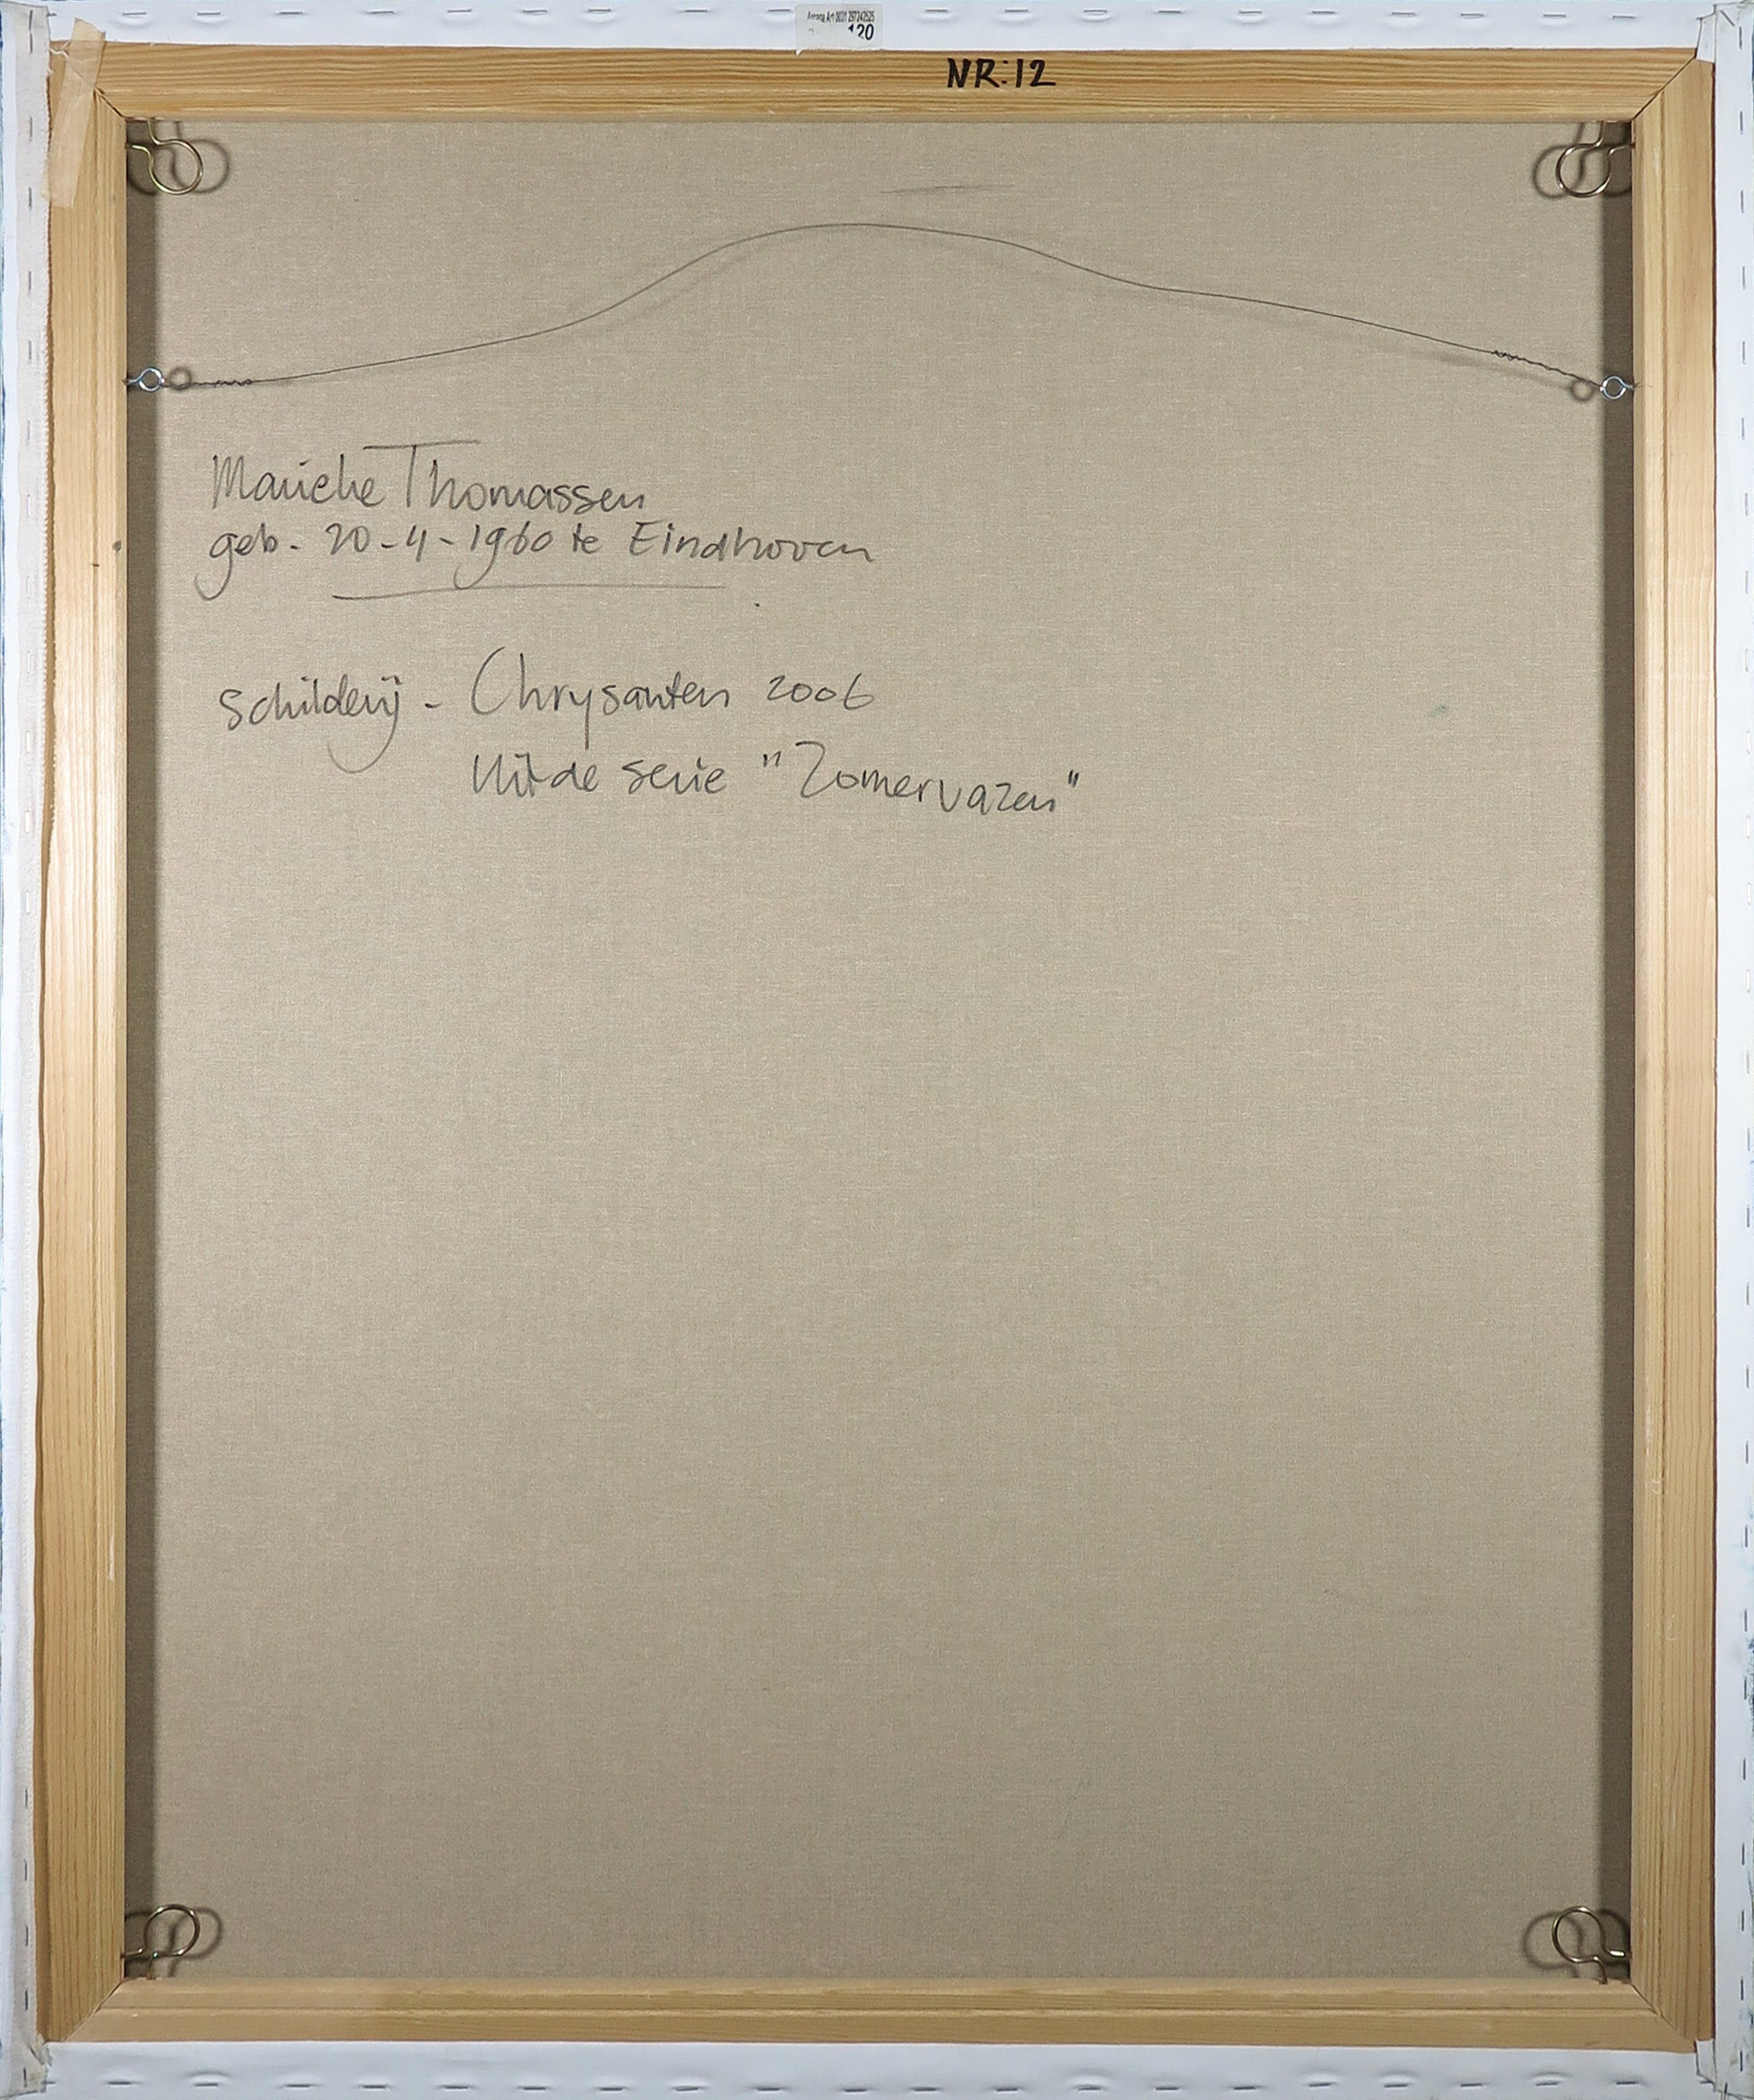 120
NR:12
Marieke Thomassen
geb. 20-4-1960 te Eindhoven
Schilderij - Chrysanten 2006
Uit de serie "Zomervazen"